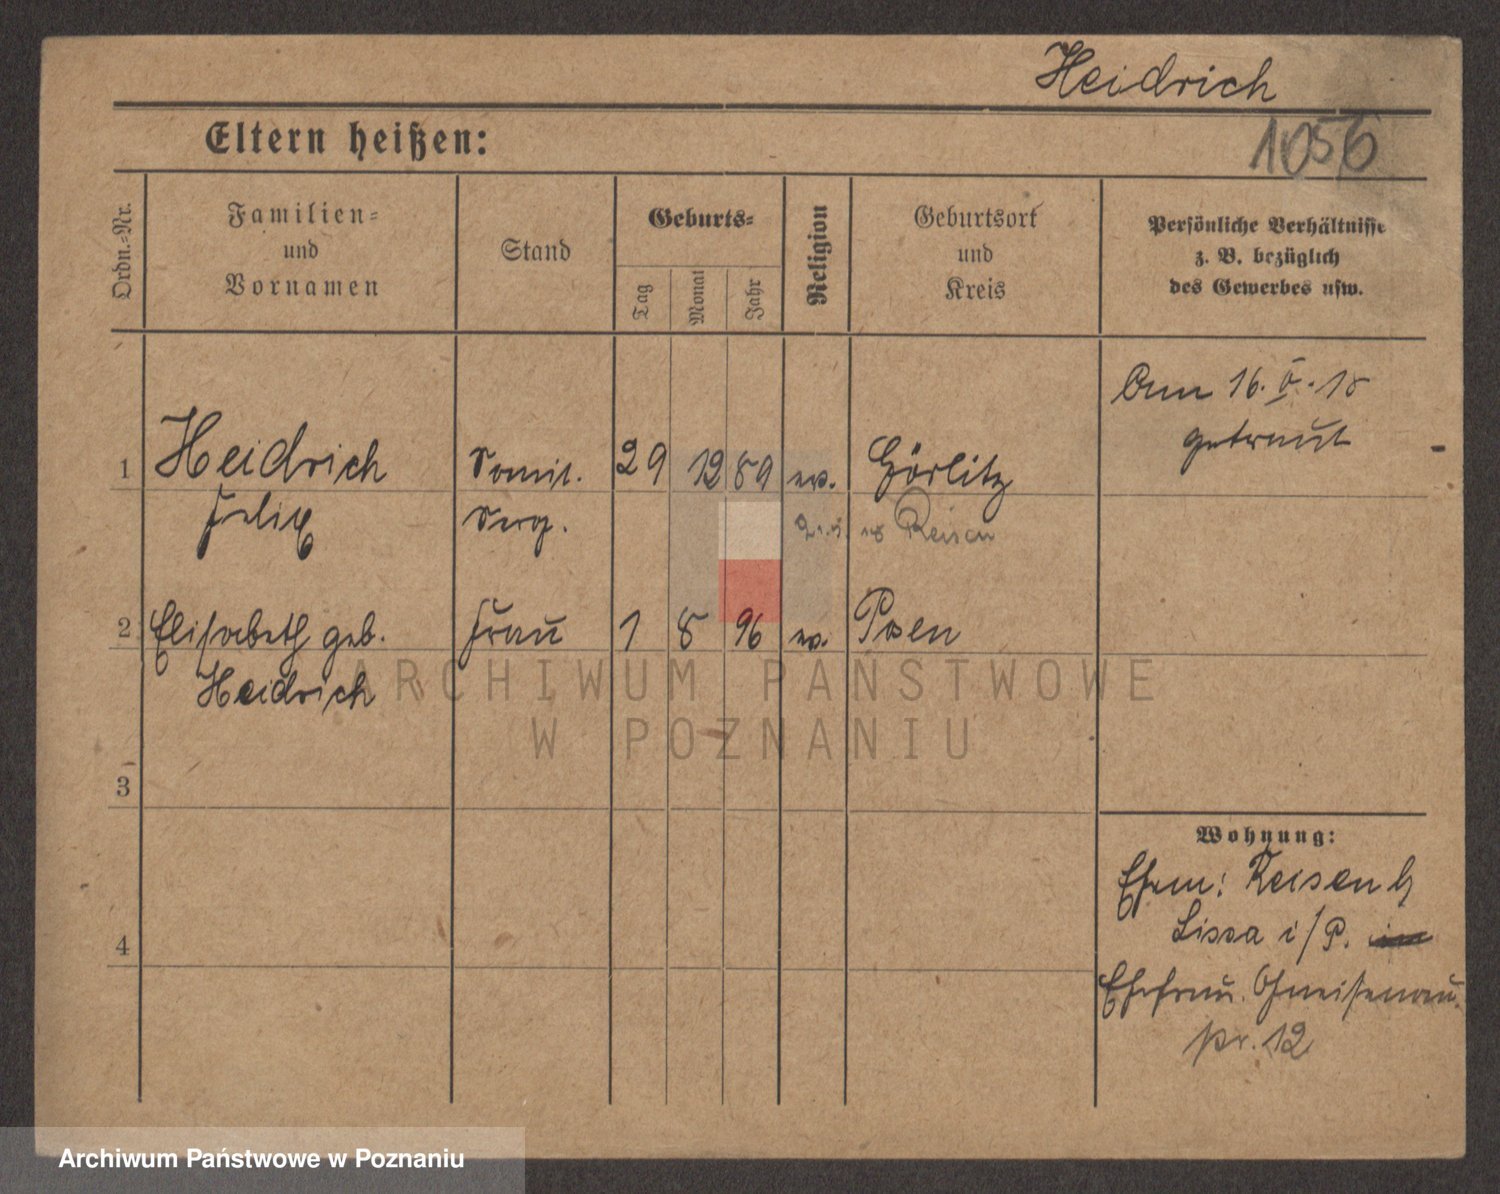 Heidrich
1056
Eltern heißen:
Ordn.-Nr.
Familien-
und
Vornamen
Stand
Geburts-
Tag
Monat
Jahr
Religion
Geburtsort
und
Kreis
Persönliche Verhältnisse
z. B. bezüglich
des Gewerbes usw.
Am 16. V. 18
getraut
1 Heidrich Sanit. 29 12 89 ev. Görlitz
Felix Serg. Reisen
2 Elisabeth geb. Frau 1 8 96 ev. Posen
Heidrich
ARCHIWUM PAŃSTWOWE
W POZNANIU
3
Wohnung:
Ehem: Reisen b/
Lissa i/P.
4
Ehefrau. Gneisenau.
12
Archiwum Państwowe w Poznaniu